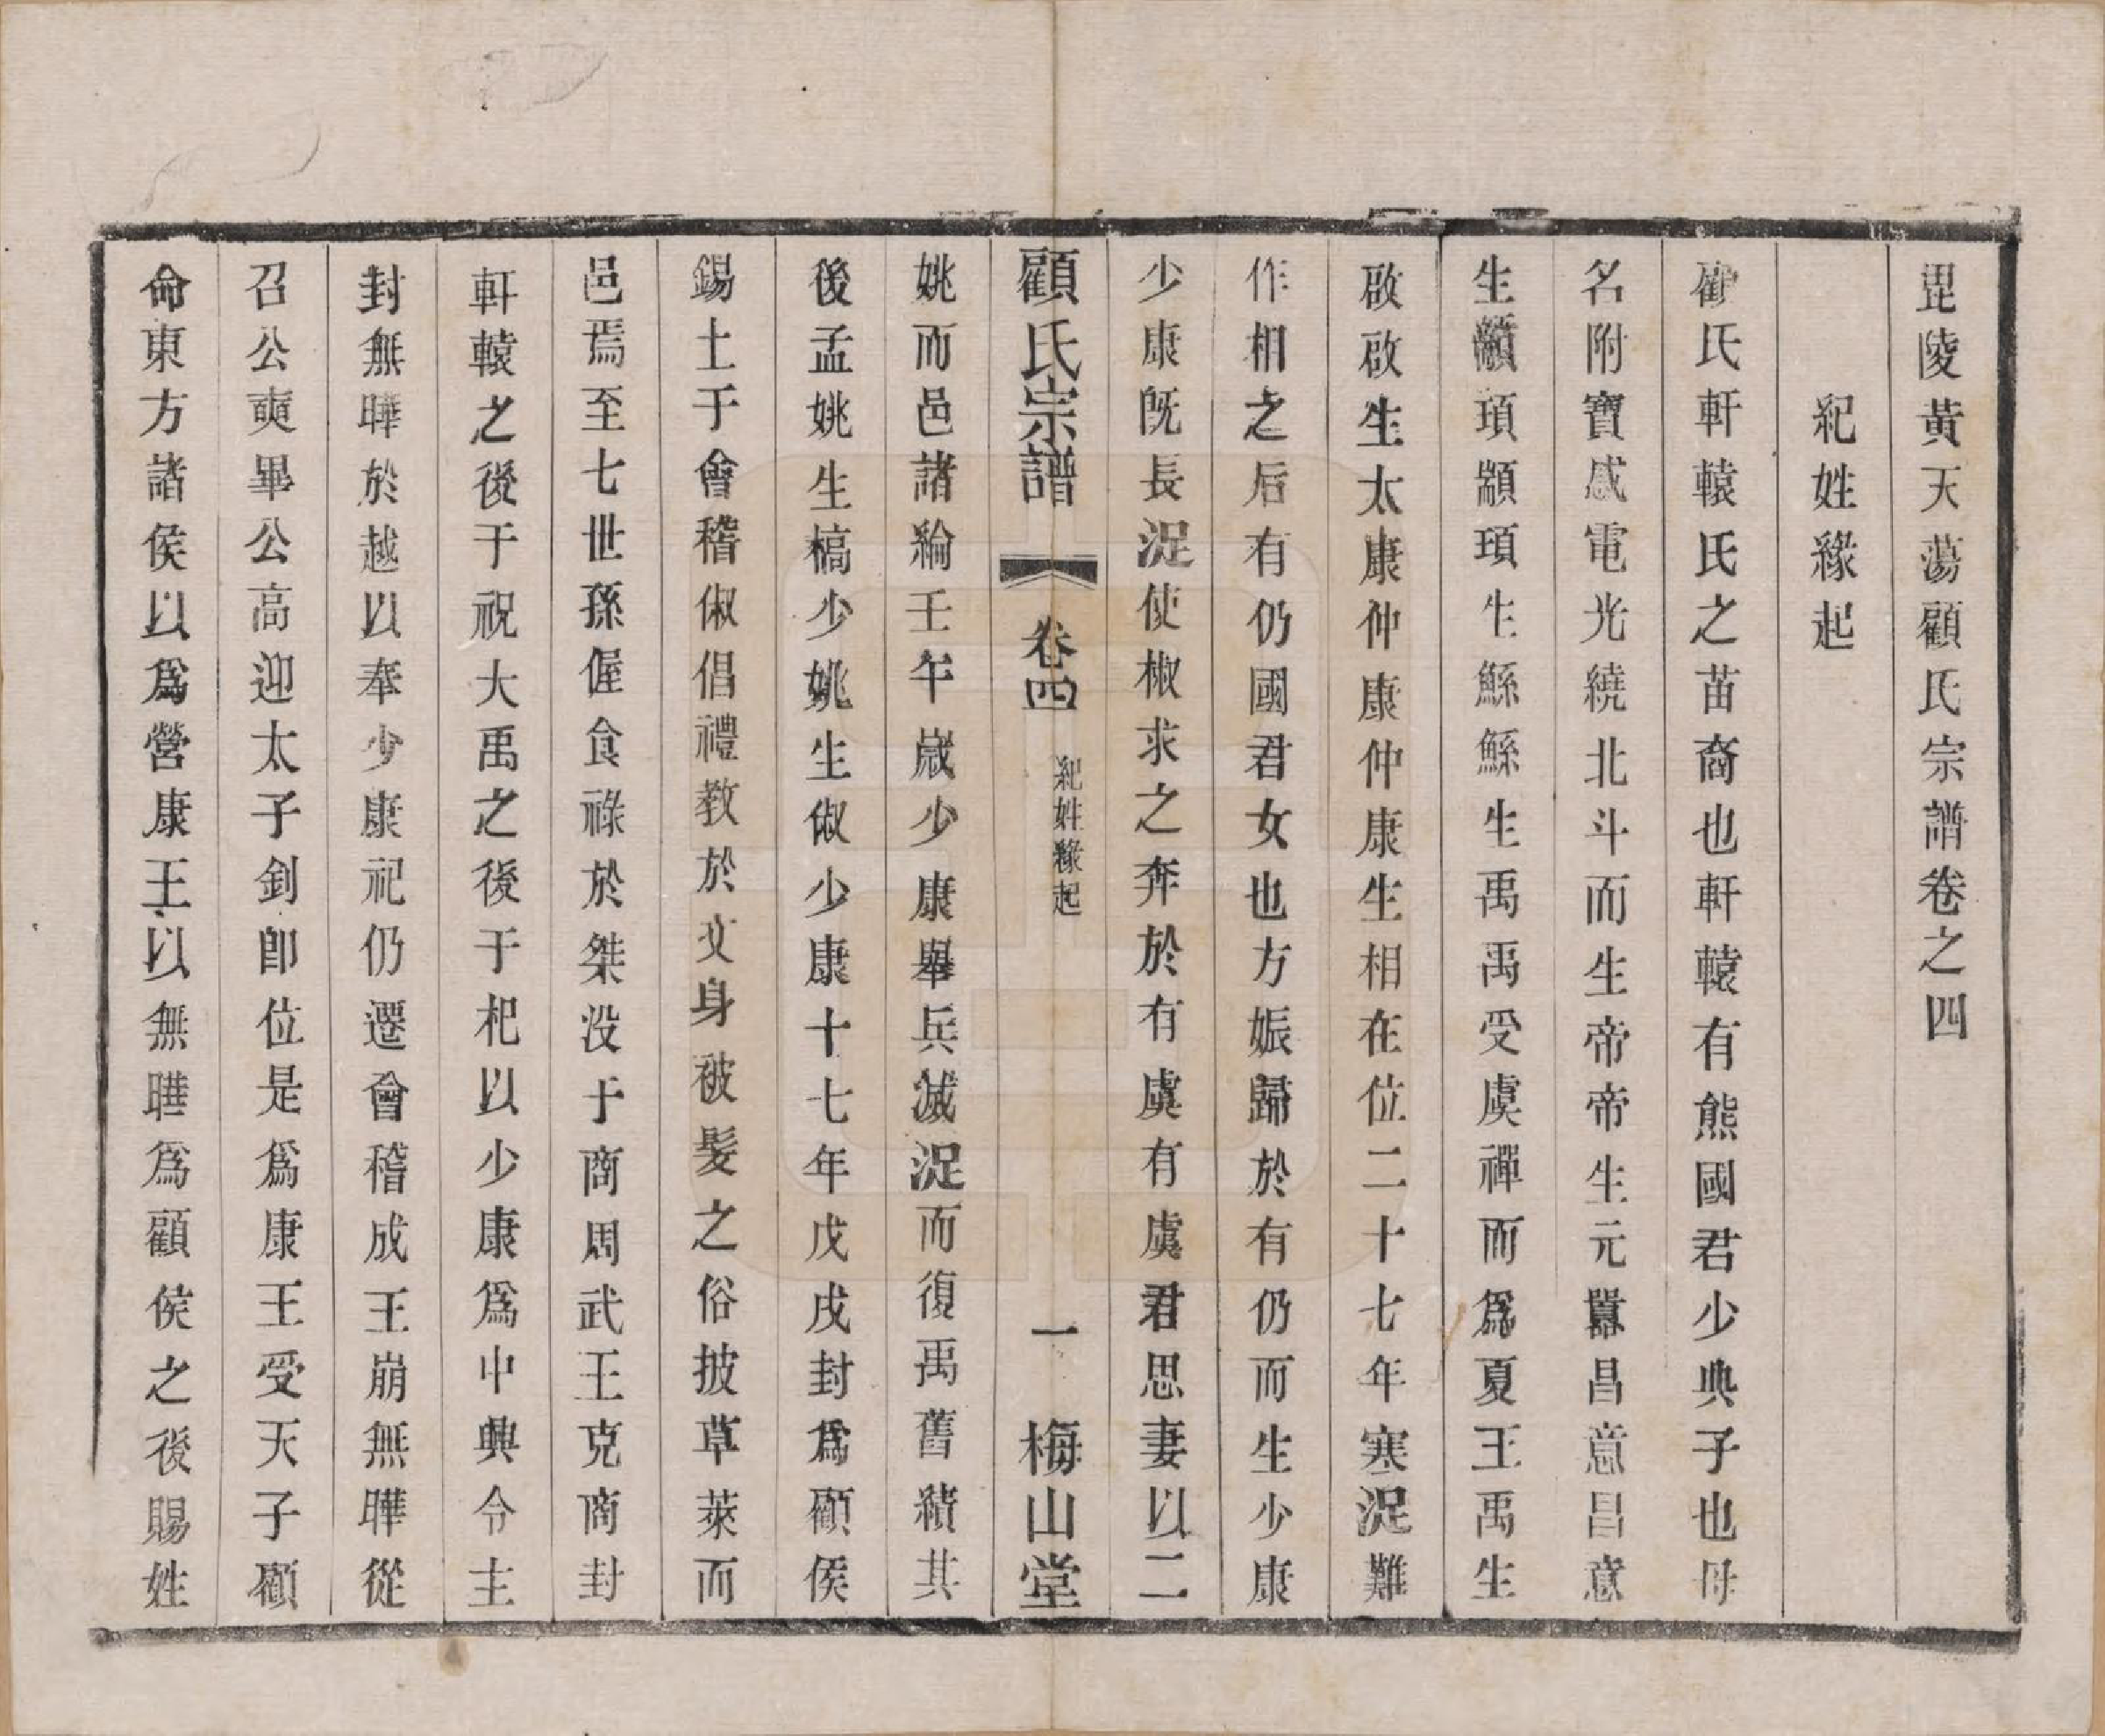 毘陵黃天蕩顧氏宗譜卷之四
紀姓緣起
顧氏軒轅氏之苗裔也軒轅有熊國君少典子也母
名附寶感電光繞北斗而生帝帝生元囂昌意昌意
生顓頊顓頊生鯀鯀生禹禹受虞禪而爲夏王禹生
啟啟生太康仲康仲康生相在位二十七年寒浞難
作相之后有仍國君女也方娠歸於有仍而生少康
少康旣長浞使椒求之奔於有虞有虞君思妻以二
顧氏宗譜 卷四 紀姓緣起 一 梅山堂
姚而邑諸綸壬午歲少康舉兵滅浞而復禹舊績其
後孟姚生槁少姚生俶少康十七年戊戌封爲顧侯
錫土于會稽俶倡禮教於文身被髮之俗披草萊而
邑焉至七世孫偓食祿於桀没于商周武王克商封
軒轅之後于祝大禹之後于杞以少康爲中興令主
封無曄於越以奉少康祀仍遷會稽成王崩無曄從
召公奭畢公高迎太子釗卽位是爲康王受天子顧
命東方諸侯以爲營康王以無曄爲顧侯之後賜姓